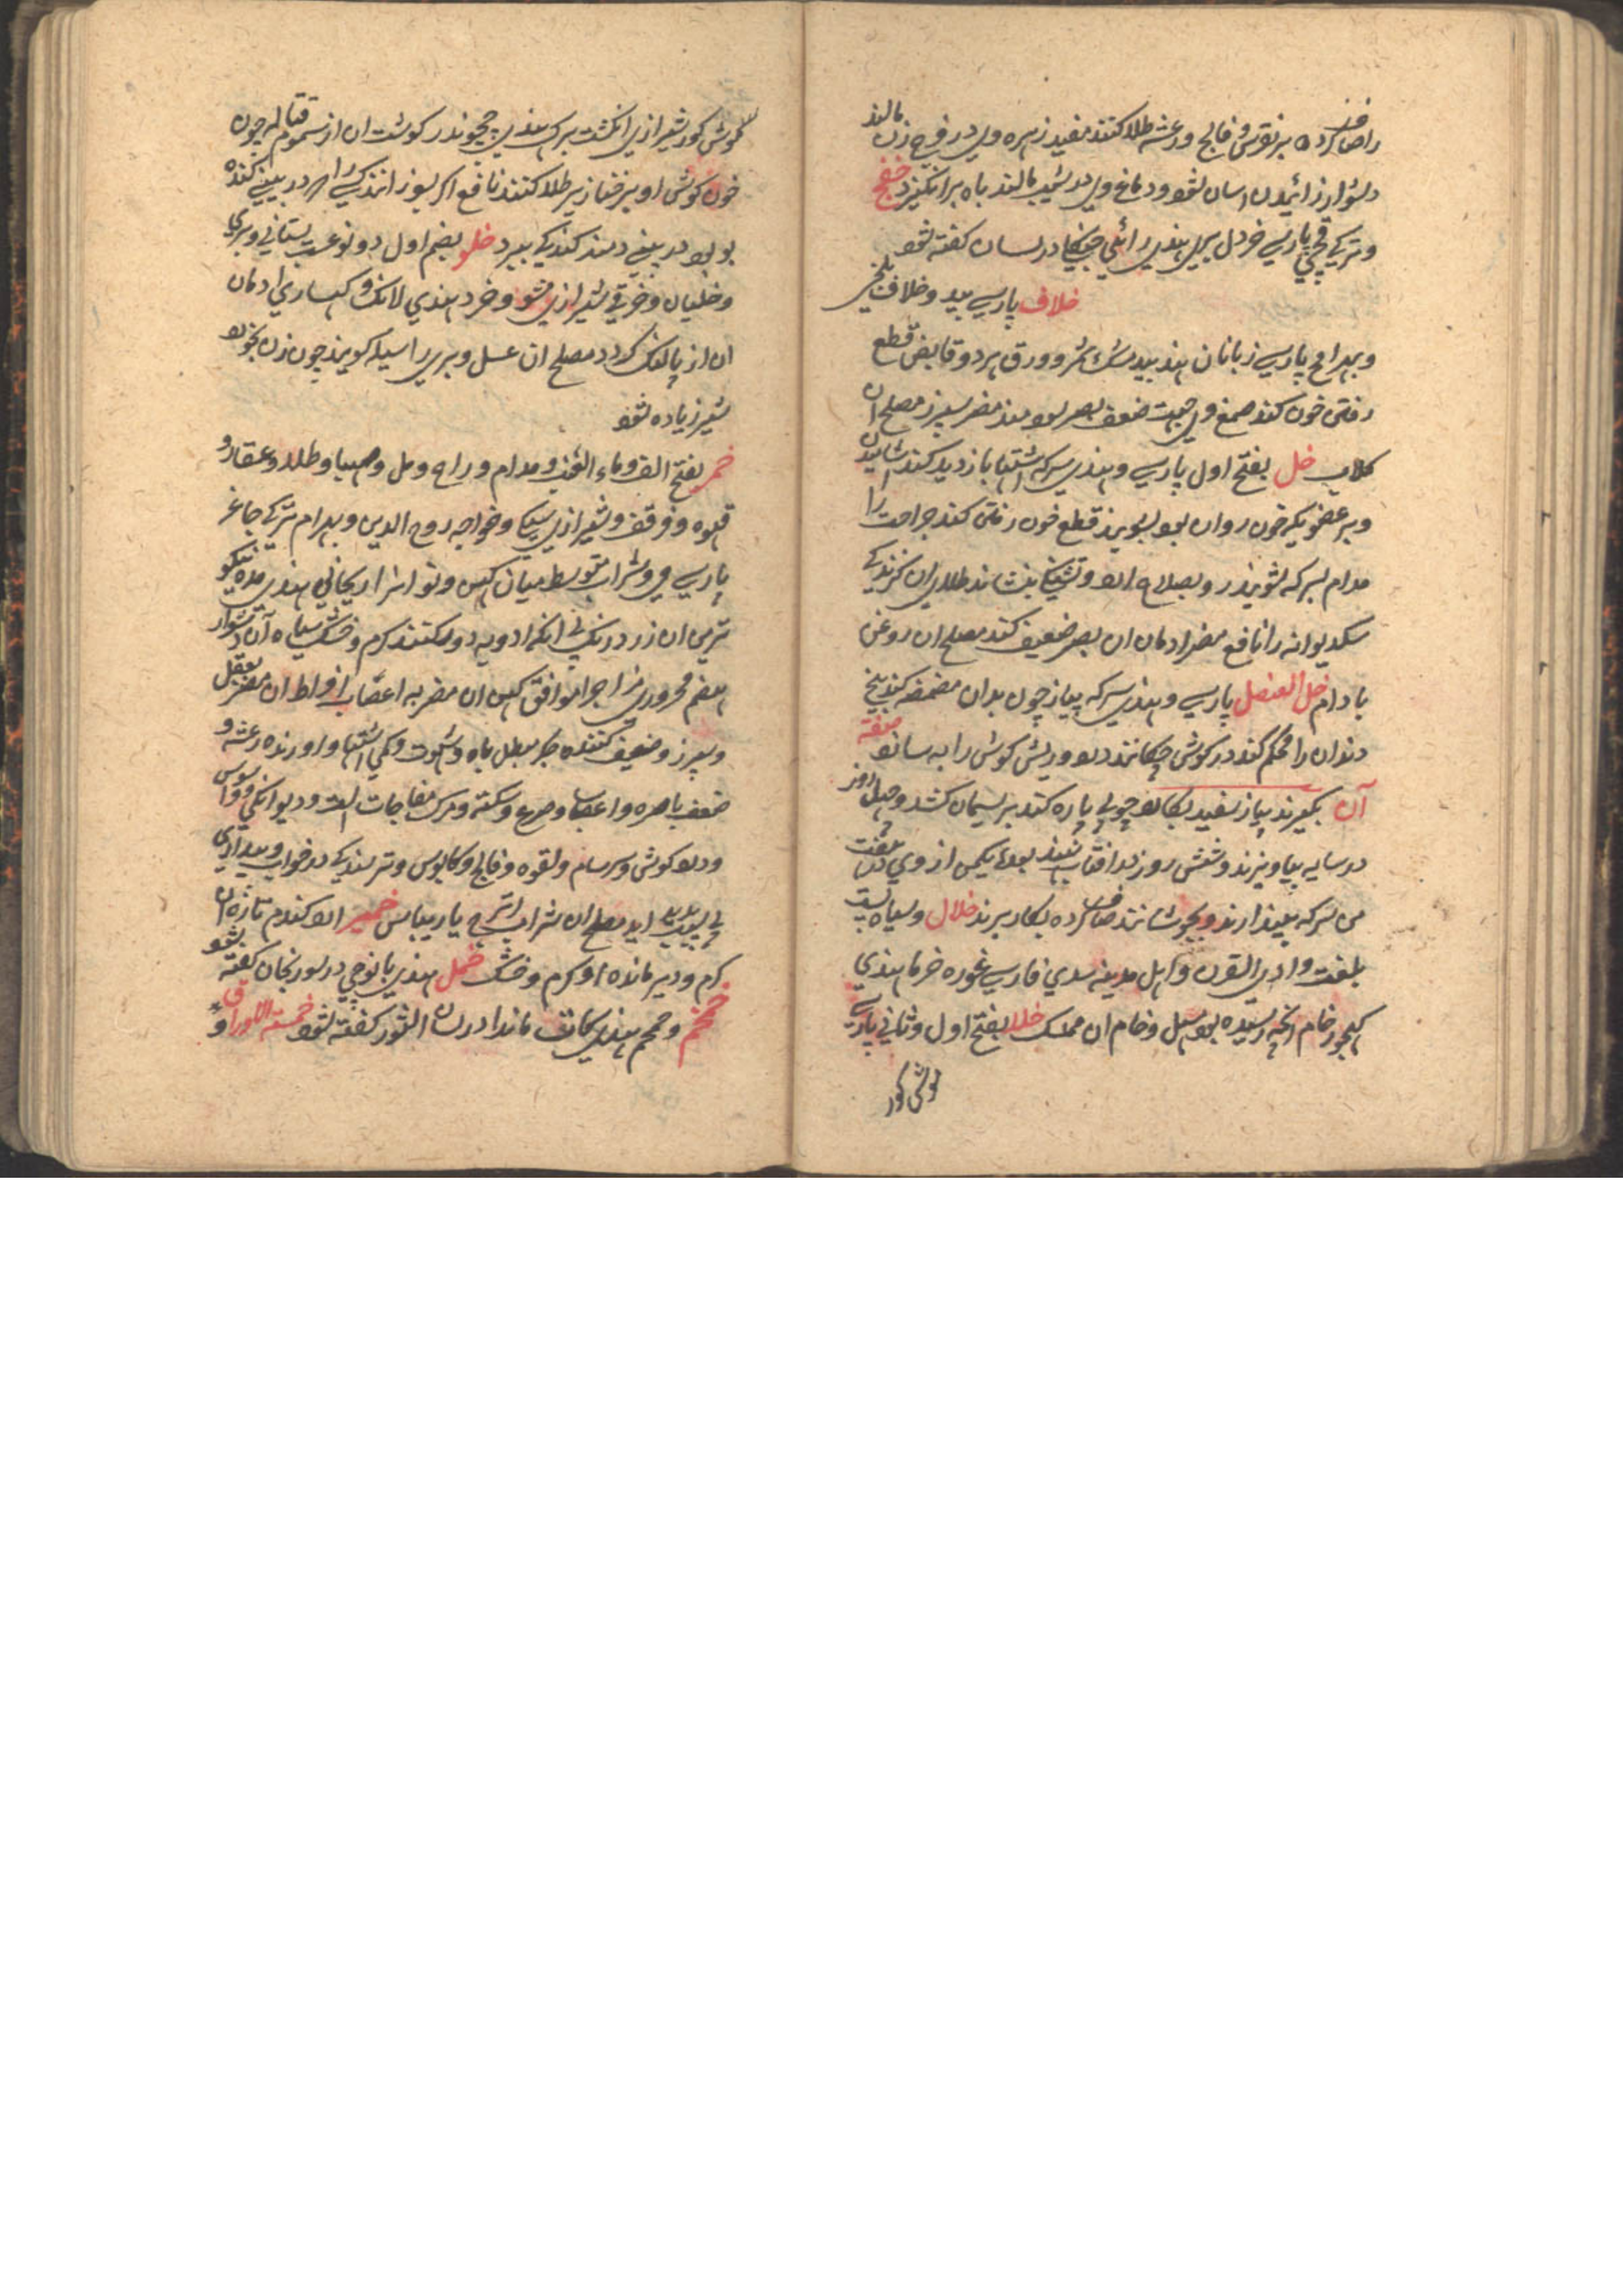 را صاف کرده بر نقرس و فالج و رعشه طلا کنند مفید زهره وی در فرج زن مالند
دشوار زائیدن اسان شود و دماغ وی در مالند باه برانگیزد خفج
و ترکی قچی پارسی خردل بری هندی رائی درلسان کفته شود
خلاف پارسی بید و خلاف بلخی
و بهرامج پارسی زبانان هند بید مشک ثمر و ورق هر دو قابض قطع
رفتن خون کند صمغ وی جهت ضعف بصر سودمند مضر سپرز مصلح ان
کلاب خل بفتح اول پارسی و هندی سرکه اشتها بازدید کند
و بر عضویکه خون روان بود بشویند قطع خون رفتن کند جراحت را
مدام بسرکه شویند رو بصلاح ارد و تشنگی بنشاند طلای ان کزندکی
سک دیوانه را نافع مضر ادمان ان بصر ضعیف کند مصلح ان روغن
بادام خل العنصل پارسی و هندی سرکه پیاز چون بدان مضمضه کند بیخ
دندان را محکم کند در کوش چکانند درد و ریش کوش را به سازد صفة
آن بکیرند پیاز سفید بکارد چوبی پاره کنند بر ریسمان کشد و چهل روز
در سایه بیاویزند و شش روز در افتاب نهند بعد یکمن از وی در هفت
من سرکه بیندازند و بجوشانند صاف کرده بکار برند خلال و سیاه است
بلغت وادی القری و اهل مدینه سدی فارسی غوره خرما هندی
کهجور خام انچه رسیده بود سهل و خام ان ممسک خلد بفتح اول و ثانی پارسی
موش کور
موش کور شیرازی انکشت برک هندی چچوندر کوشت ان از سموم قتاله چون
خون کوش او بر خنازیر طلا کنند نافع اکر پوز اندکی را در بینی کنده
بو بود در بینی دمند کندکی ببرد خلر بضم اول دو نوعست بستانی و بری
و خلیان و خرفی شیرازی مشو و خرد هندی لانک و کهساری ادمان
ان از پا لنک کردد مصلح ان عسل و بری را سیله کویند چون زن بخورد
شیر زیاده شود
خمر بفتح الف و ماء العنب و مدام و راح و مل و صهبا و طلا و عقار و
قهوه و قرقف و شیرازی سیکی و خواجه روح الدین و بهرام ترکی چاغر
پارسی می و شراب متوسط میان کهن و نو انرا ریحانی هندی مده نیکو
ترین ان زرد رنک بی انکه ادویه درو کنند کرم و خشک سیاه آن دشوار
هضم محروری مزاجرا موافق کهن ان مضر به اعصاب افراط ان مضر بعقل
و سپرز و ضعیف کننده جکر مبطل باه و شهوت و کمی اشتها و اورنده رعشه و
ضعف باصره و اعصاب و صرع و سکته و مرک مفاجات ارد و دیوانکی و وسواس
و درد کوش و سرسام و لقوه و فالج و کابوس و ترسندکی در خواب و بیداری
پدید اید مصلح ان شراب اترج یا ریباس خمیر ارد کندم تازه ان
کرم و دیر مانده او کرم و خشک خمل هندی بانوچی در سورنجان کفته شود
خمخم و حمحم هندی مانند در لسان الثور کفته شود خمسة الاوراق و